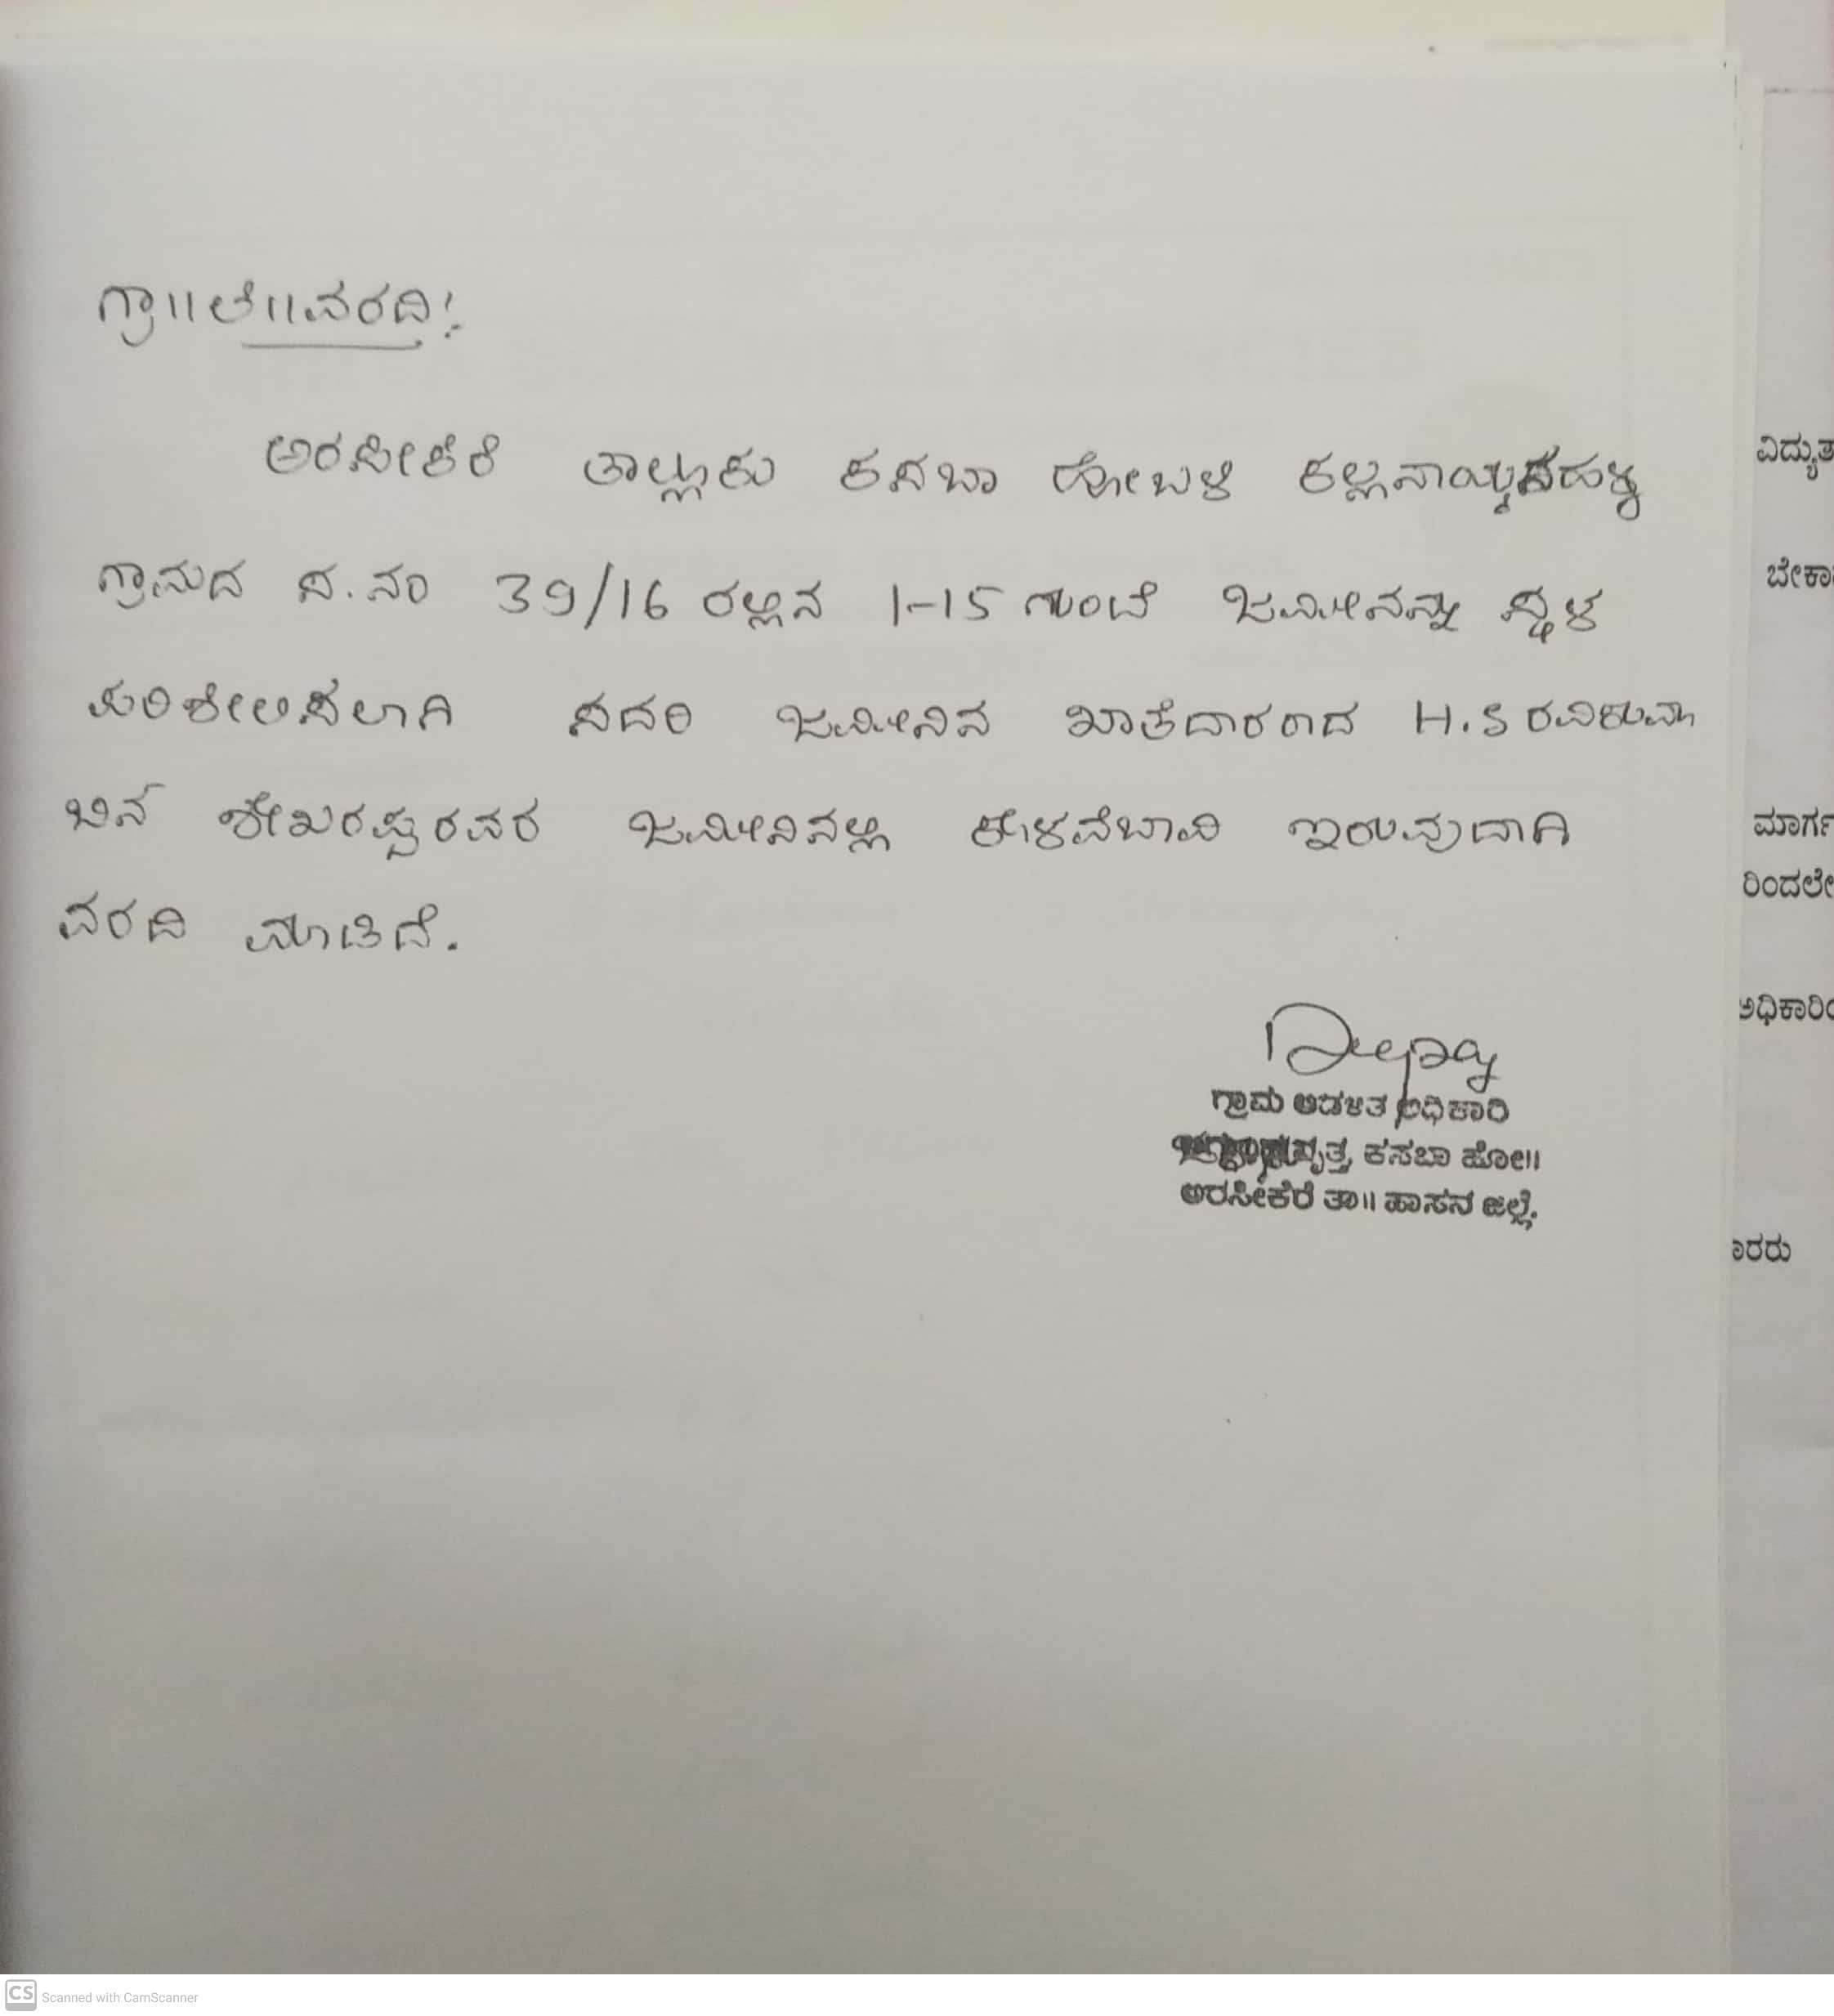 ಗ್ರಾ॥ಲೆ॥ವರದಿ:
ಅರಸೀಕೆರೆ ತಾಲ್ಲೂಕು ಕಸಬಾ ಹೋಬಳಿ ಕಲ್ಲನಾಯ್ಕನಹಳ್ಳಿ
ಗ್ರಾಮದ ಸ.ನಂ 39/16 ರಲ್ಲಿನ 1-15 ಗುಂಟೆ ಜಮೀನನ್ನು ಸ್ಥಳ
ಪರಿಶೀಲಿಸಲಾಗಿ ಸದರಿ ಜಮೀನಿನ ಖಾತೆದಾರರಾದ H.S ರವಿಕುಮಾ
ಬಿನ್ ಶೇಖರಪ್ಪರವರ ಜಮೀನಿನಲ್ಲಿ ಕೊಳವೆಬಾವಿ ಇರುವುದಾಗಿ
ವರದಿ ಮಾಡಿದೆ.
Deepa
ಗ್ರಾಮ ಆಡಳಿತ ಅಧಿಕಾರಿ
ವೃತ್ತ, ಕಸಬಾ ಹೋ॥
ಅರಸೀಕೆರೆ ತಾ॥ ಹಾಸನ ಜಿಲ್ಲೆ.
ವಿದ್ಯುತ
ಬೇಕಾ
ಮಾರ್ಗ
ರಿಂದಲೇ
ಅಧಿಕಾರಿ
ಾರರು
CS Scanned with CamScanner